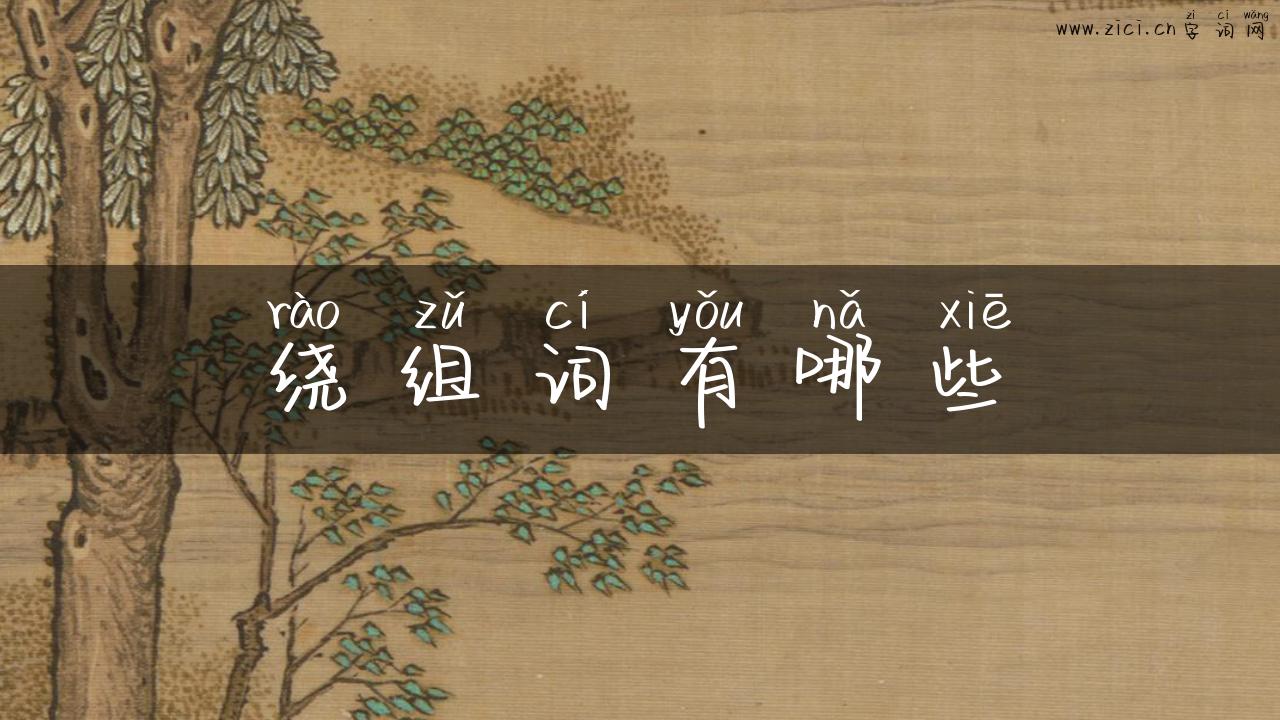 zì cí wǎng
www.zici.cn 字词网
rào zǔ cí yǒu nǎ xiē
绕组词有哪些